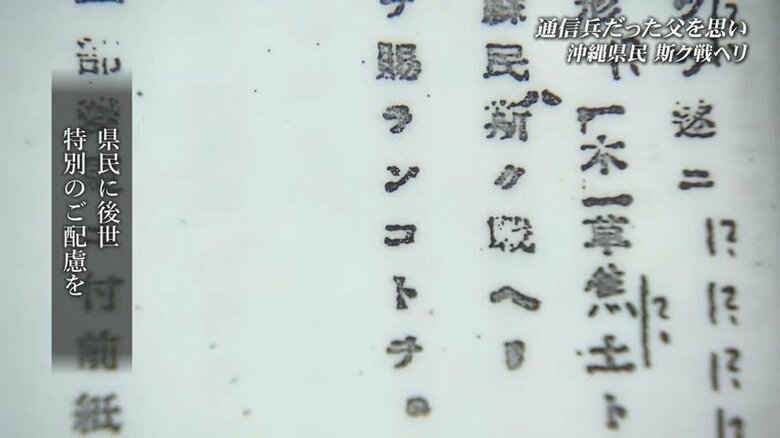 通信兵だった父を思い
沖縄県民 斯ク戦ヘリ
県民に後世
特別のご配慮を
遂ニ
一木一草焦土ト
縄民斯ク戦ヘリ
賜ランコトヲ
付前紙